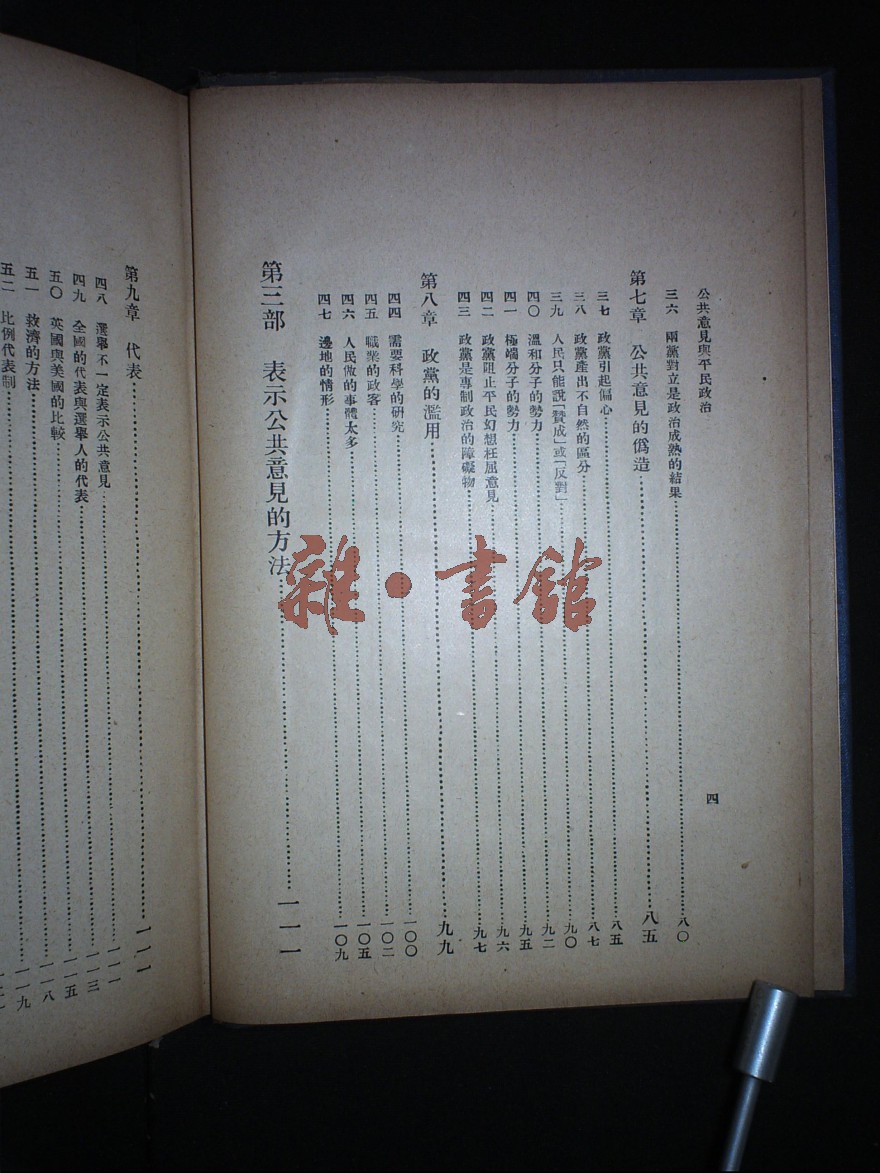 公共意見與平民政治
四
三六 兩黨對立是政治成熟的結果……八〇
第七章 公共意見的僞造……八五
三七 政黨引起偏心……八五
三八 政黨產出不自然的區分……八七
三九 人民只能說「贊成」或「反對」……九〇
四〇 溫和分子的勢力……九二
四一 極端分子的勢力……九五
四二 政黨阻止平民幻想枉屈意見……九六
四三 政黨是專制政治的障礙物……九七
第八章 政黨的濫用……九九
四四 需要科學的研究……一〇〇
四五 職業的政客……一〇二
四六 人民做的事體太多……一〇五
四七 邊地的情形……一〇九
第三部 表示公共意見的方法……一一一
第九章 代表……一一一
四八 選舉不一定表示公共意見……一一一
四九 全國的代表與選舉人的代表……一一三
五〇 英國與美國的比較……一一五
五一 救濟的方法……一一八
五二 比例代表制……一一九
雜·書館